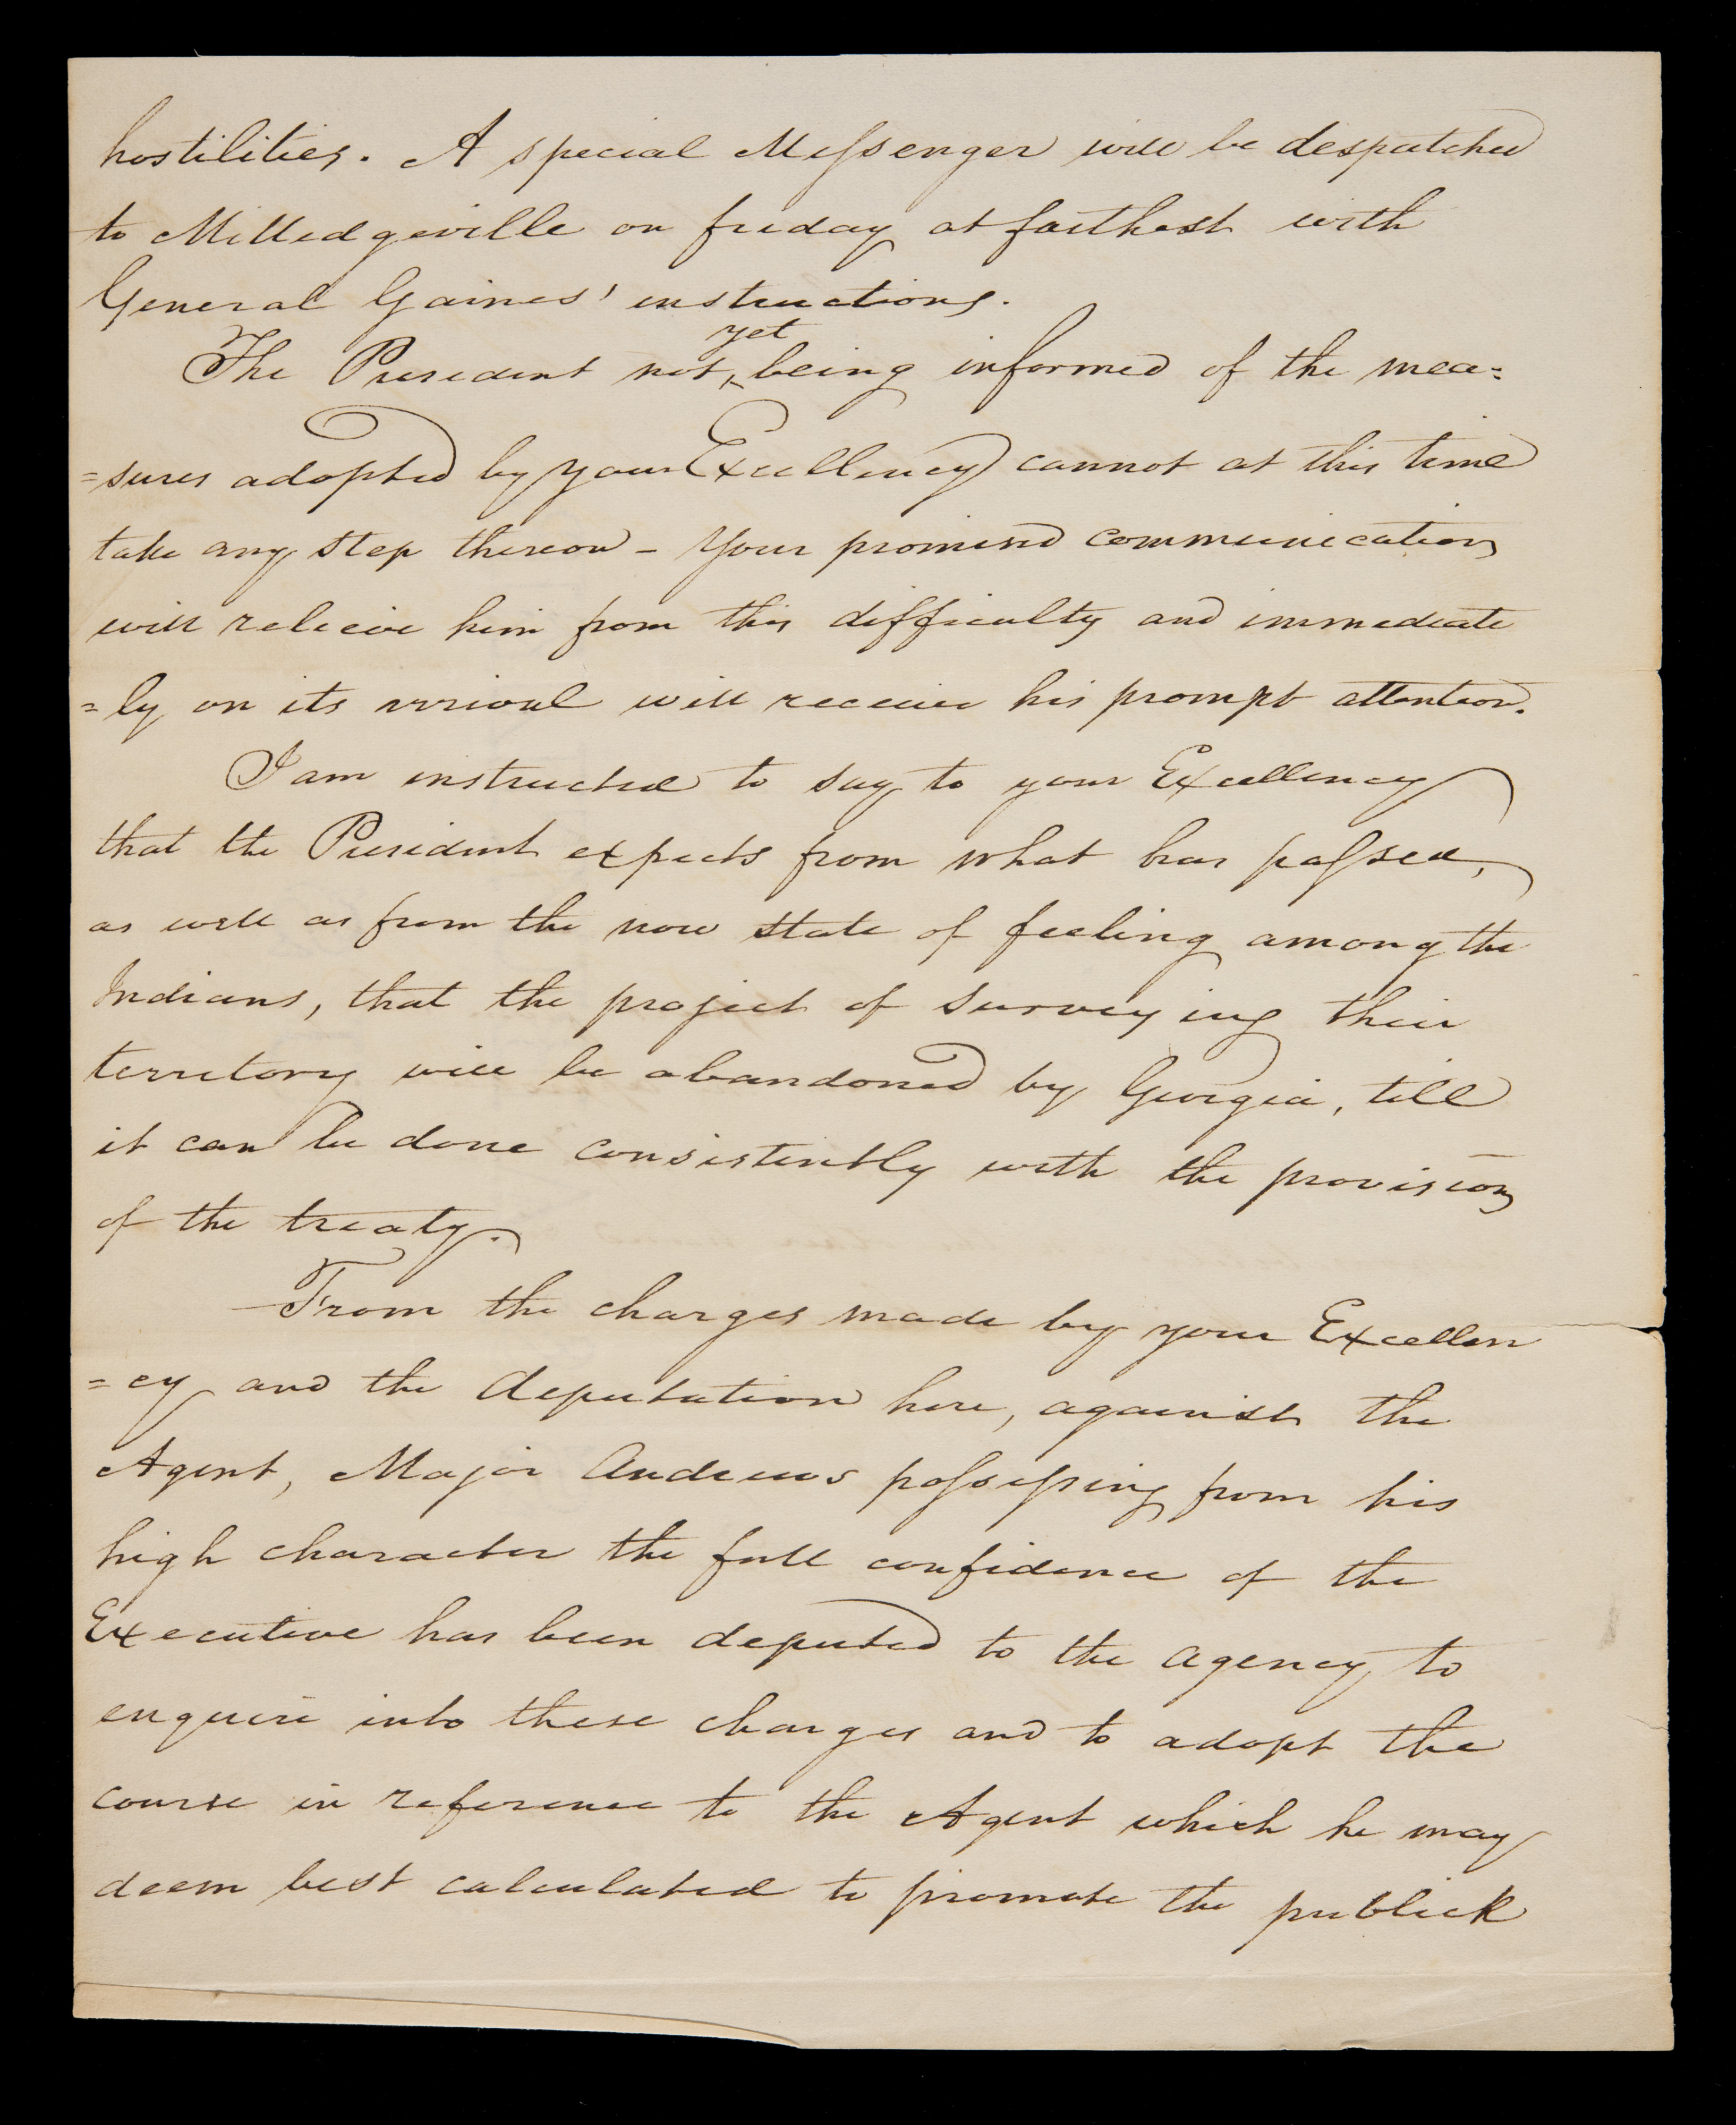 hostilities. A special Messenger will be despatched
to Milledgeville on friday at farthest with
General Gaines' instructions.
yet
The President not, being informed of the mea=
=sures adopted by your Excellency cannot at this time
take any step thereon - Your promised communication
will relieve him from this difficulty and immediate
=ly on its arrival will receive his prompt attention.
I am instructed to say to your Excellency
that the President expects from what has passed,
as well as from the now state of feeling among the
Indians, that the project of surveying their
territory will be abandoned by Georgia, till
it can be done consistently with the provisions
of the treaty.
From the charges made by your Excellen
=cy and the deputation here, against the
Agent, Major Andrews possessing from his
high character the full confidence of the
Executive has been deputed to the agency to
enquire into these charges and to adopt the
course in reference to the Agent which he may
deem best calculated to promote the publick